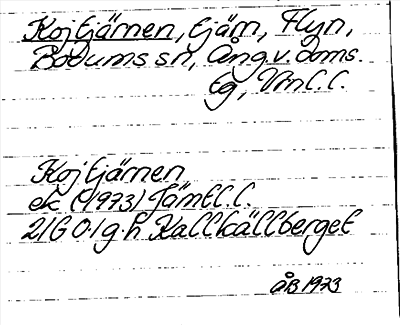 Kojtjärnen, tjärn, Flyn,
Bodums sn, Ång.v. doms.
tg, Vnl.l.
Kojtjärnen
ek (1973) Jämtl.l.
21G 0-1 g-h Kallkällberget
ÅB 1973